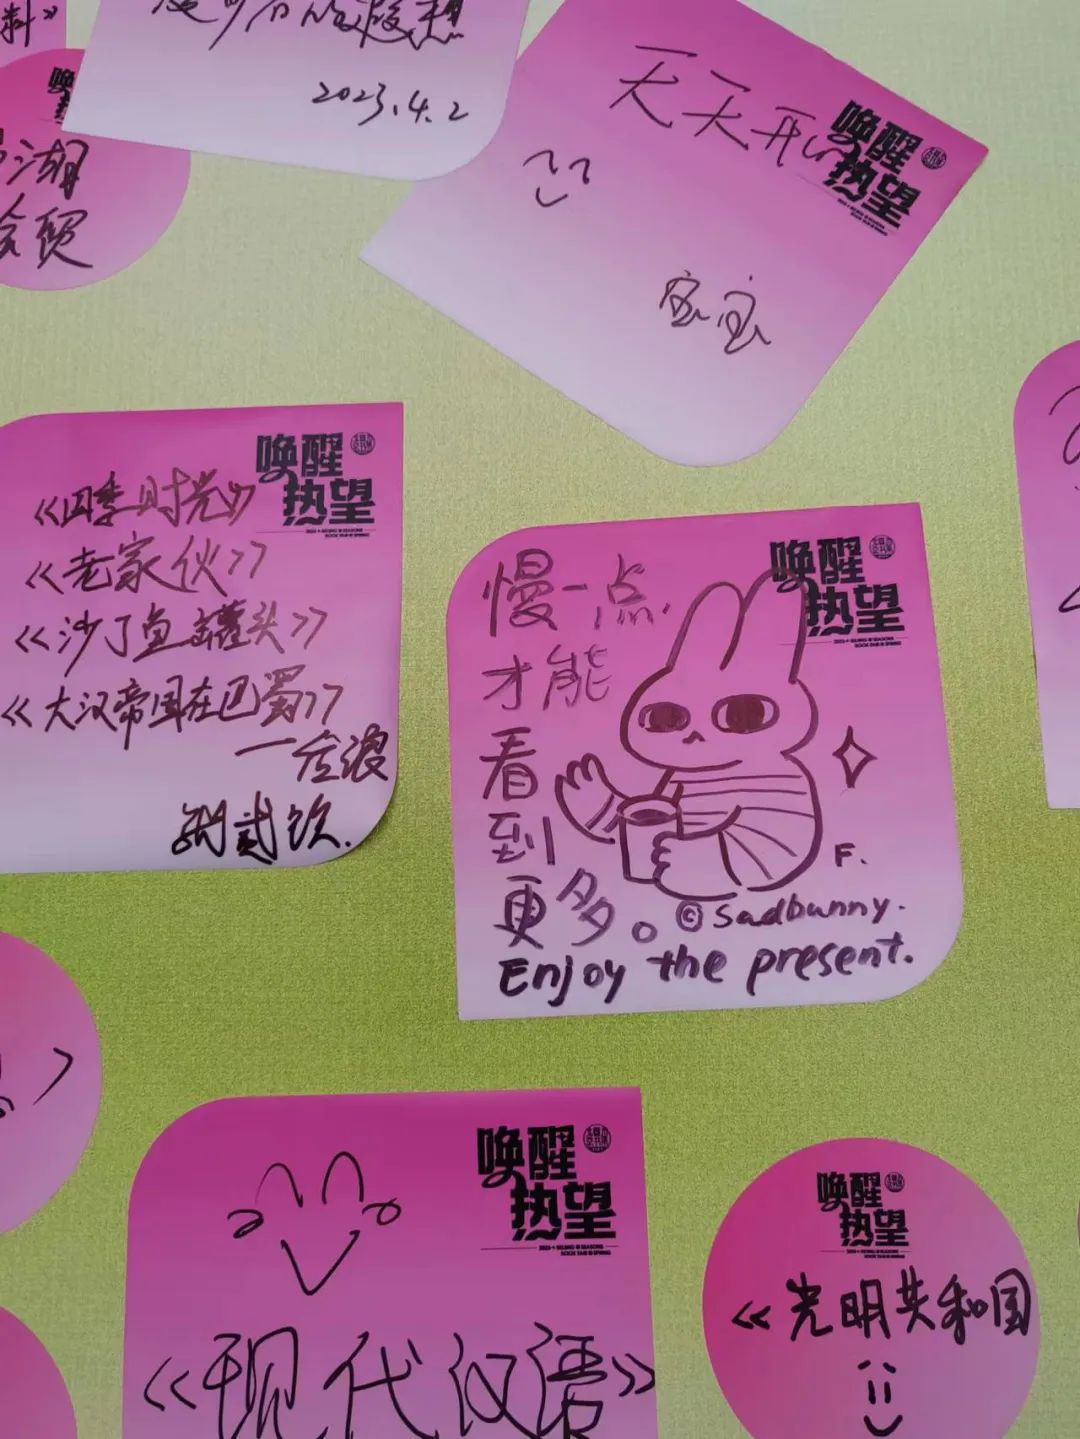 料》
2023.4.2
天天开心
唤醒
热望
宝宝
湖
唤醒
热望
《四季时光》
《老家伙》
《沙丁鱼罐头》
《大汉帝国在巴蜀》
一后浪
唤醒
热望
慢一点
才能
看
到
更多。
F.
©Sadbunny.
Enjoy the present.
唤醒
热望
2023·BEIJING SEASONS
BOOK FAIR SPRING
《现代汉语》
唤醒
热望
《光明共和国